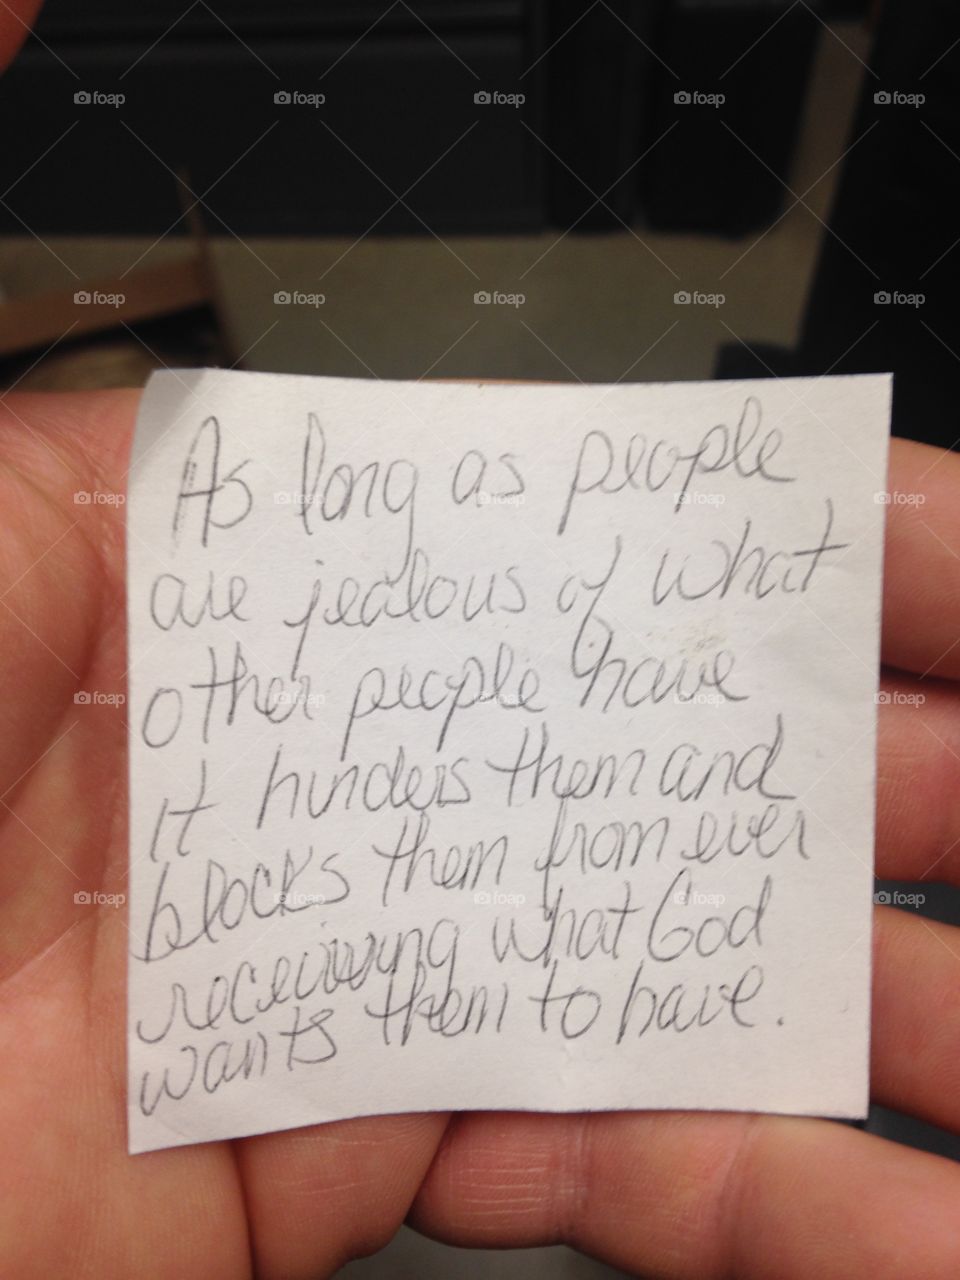 As long as people
are jealous of what
other people have
it hinders them and
blocks them from ever
receiving what God
wants them to have.
foap foap foap foap foap
foap foap foap foap foap
foap foap foap foap foap
foap foap foap foap foap
foap foap foap foap foap